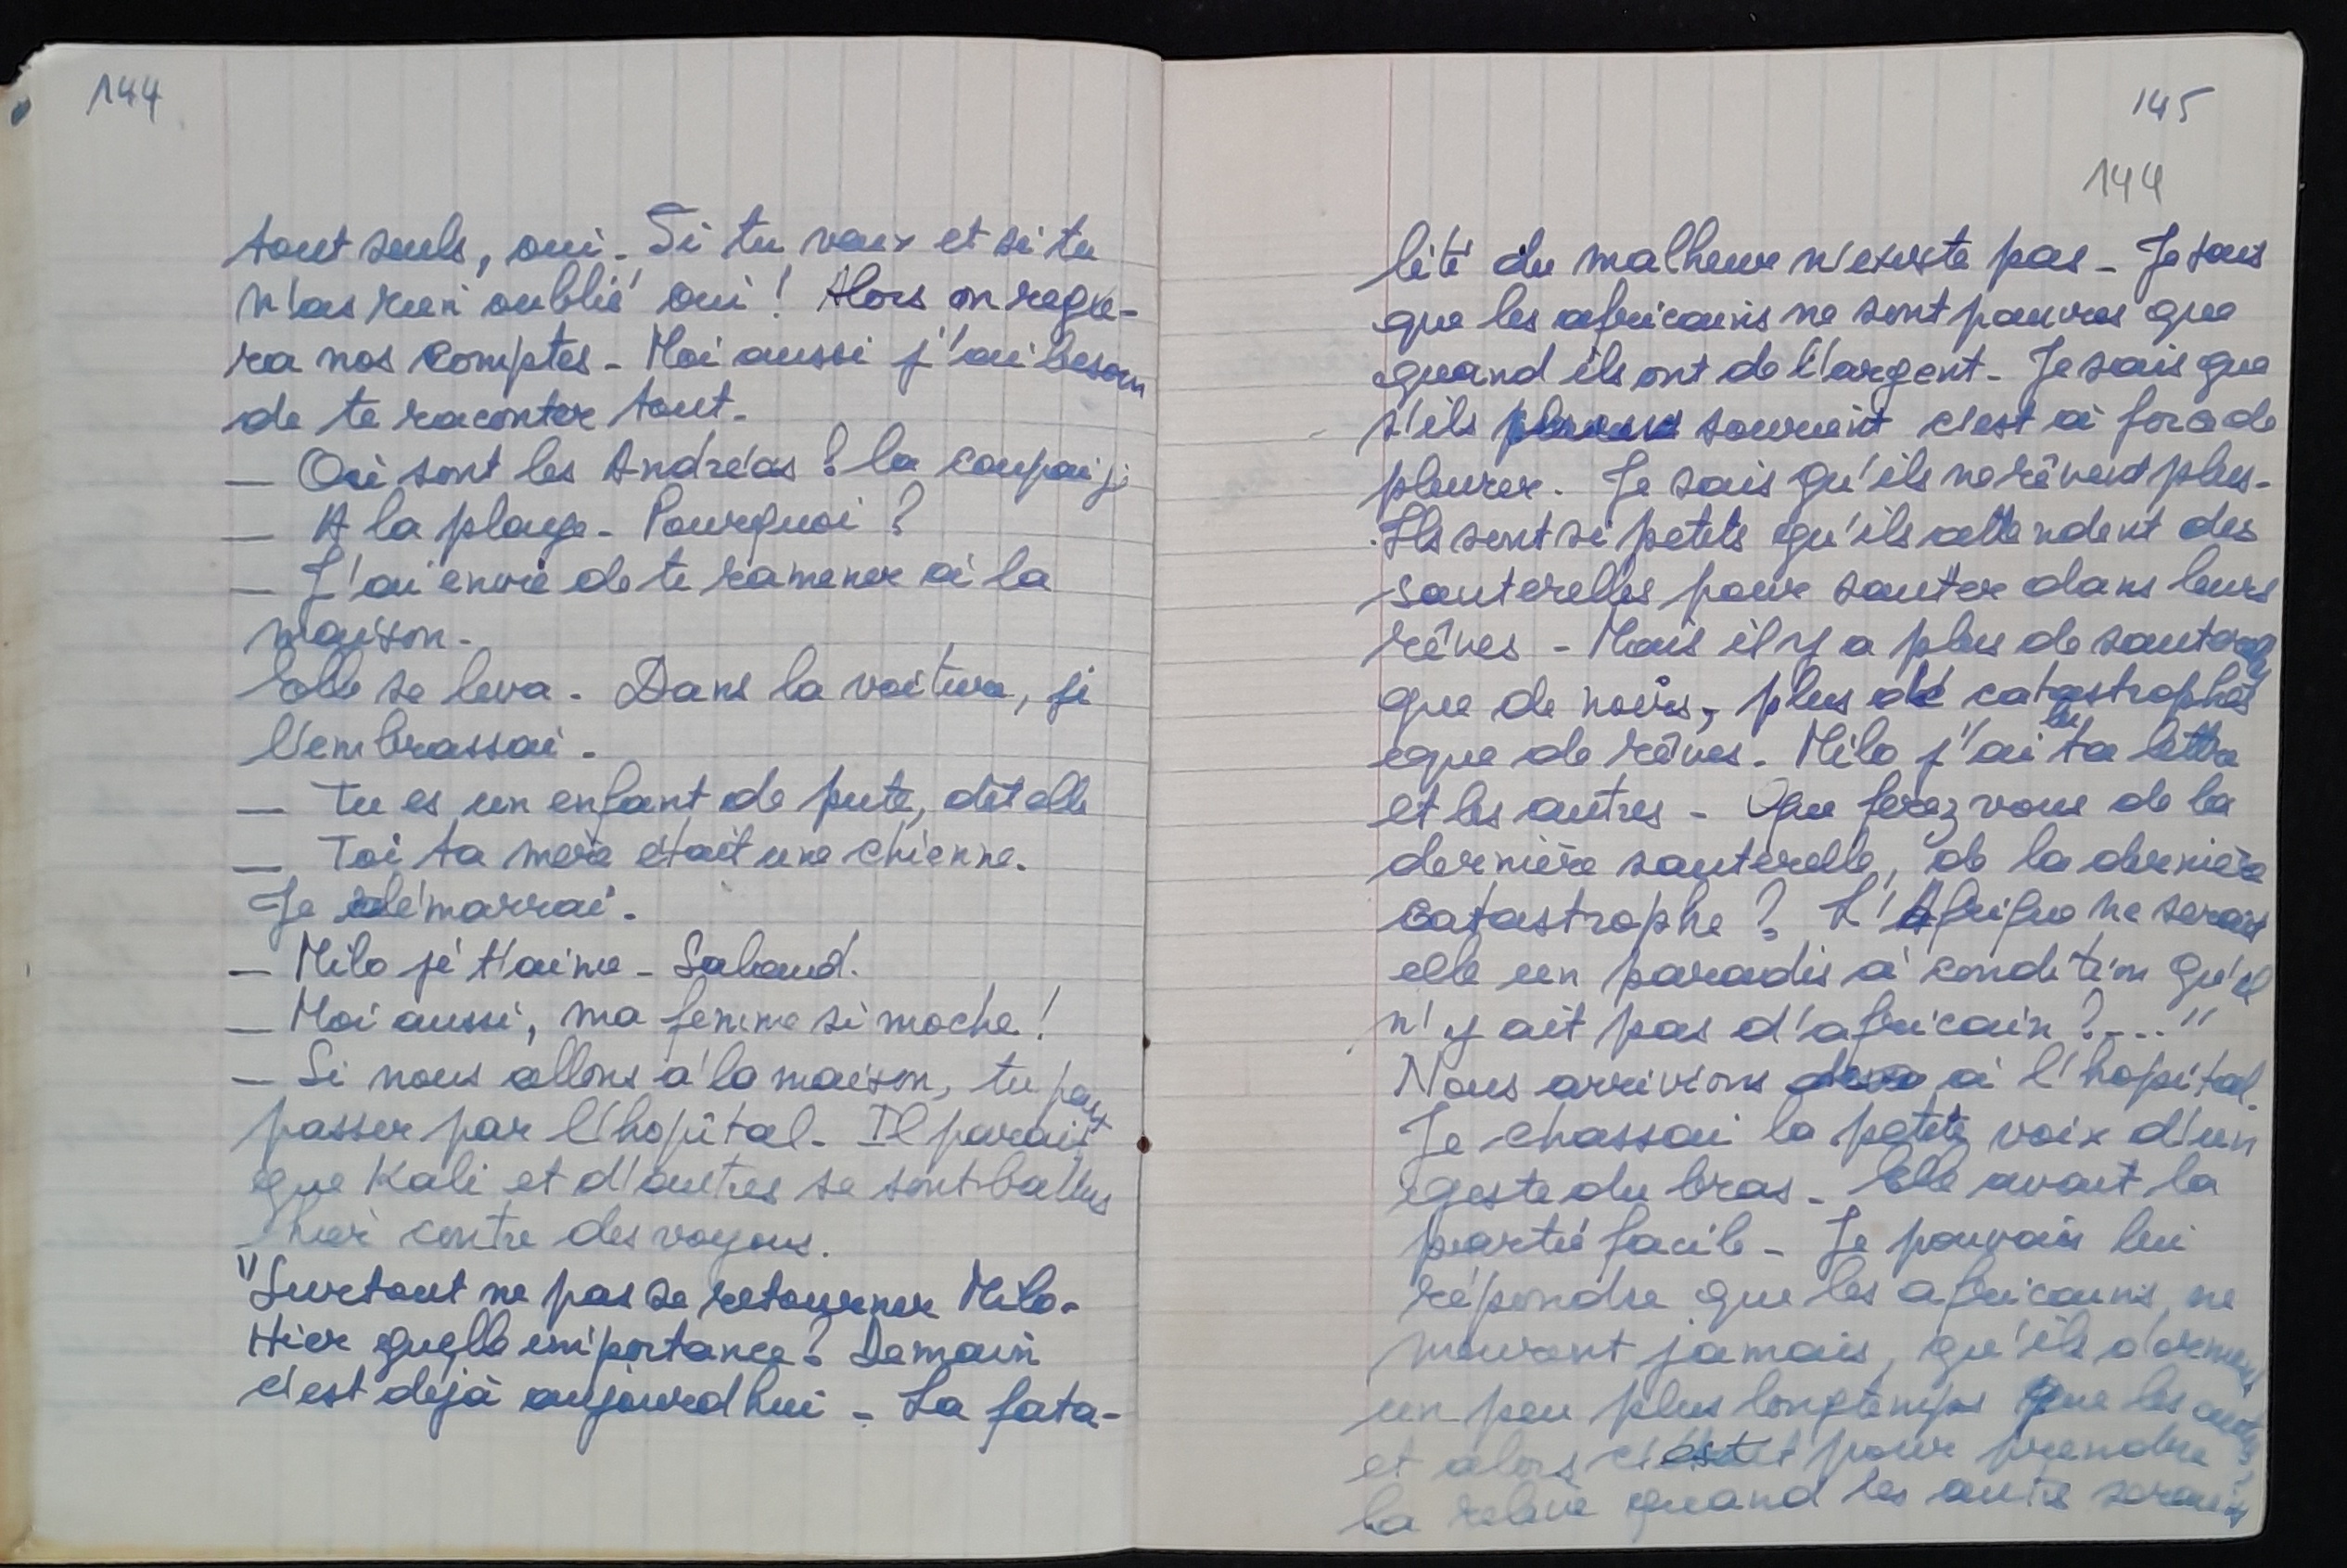 144
tout seuls, oui. Si tu veux et si tu
n'as rien oublié oui ! Alors on regle-
ra nos comptes - Moi aussi j'ai besoin
de te raconter tout.
— Où sont les Andréas ? la coupai je
— A la plage - Pourquoi ?
— J'ai envie de te ramener à la
maison -
Elle se leva. Dans la voiture, je
l'embrassai.
— Tu es un enfant de pute, dit elle
— Toi ta mère était une chienne.
Je démarrai.
— Milo je t'aime - Salaud.
— Moi aussi, ma femme si moche !
— Si nous allons à la maison, tu peux
passer par l'hopîtal. Il parait
que Kali et d'autres se sont battus
hier contre des voyous.
"Surtout ne pas se retourner Milo.
Hier quelle importance ? Demain
c'est dejà aujourd'hui - La fata-
145
144
lité du malheur n'existe pas - Je sais
que les africains ne sont pauvres que
quand ils ont de l'argent - Je sais que
s'ils sourient c'est à force de
pleurer. Je sais qu'ils ne rêvent plus -
Ils sont si petits qu'ils attendent des
sauterelles pour sauter dans leurs
rêves - Mais il y a plus de sauterelles
que de noirs, plus de catastrophes
que de rêves. Milo j'ai lu ta lettre
et les autres - Que ferez vous de la
dernière sauterelle, de la dernière
catastrophe ? L'Afrique ne serait
elle un paradis à condition qu'il
n'y ait pas d'africain ?..."
Nous arrivions à l'hopital.
Je chassai la petite voix d'un
geste du bras - Elle avait la
partie facile - Je pouvais lui
répondre que les africains ne
meurent jamais, qu'ils dorment
un peu plus longtemps que les autres,
et alors c'est pour prendre
la relève quand les autres seraient